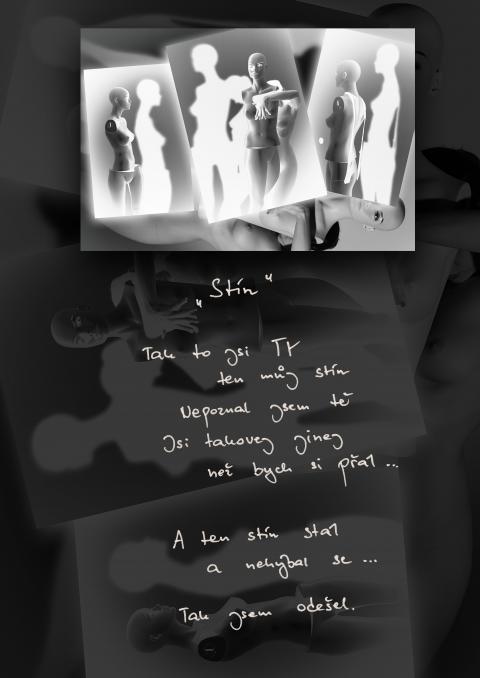 „Stín"
Tak to jsi TY
ten můj stín
Nepoznal jsem tě
Jsi takovej jinej
než bych si přál ...
A ten stín stál
a nehýbal se ...
Tak jsem odešel.